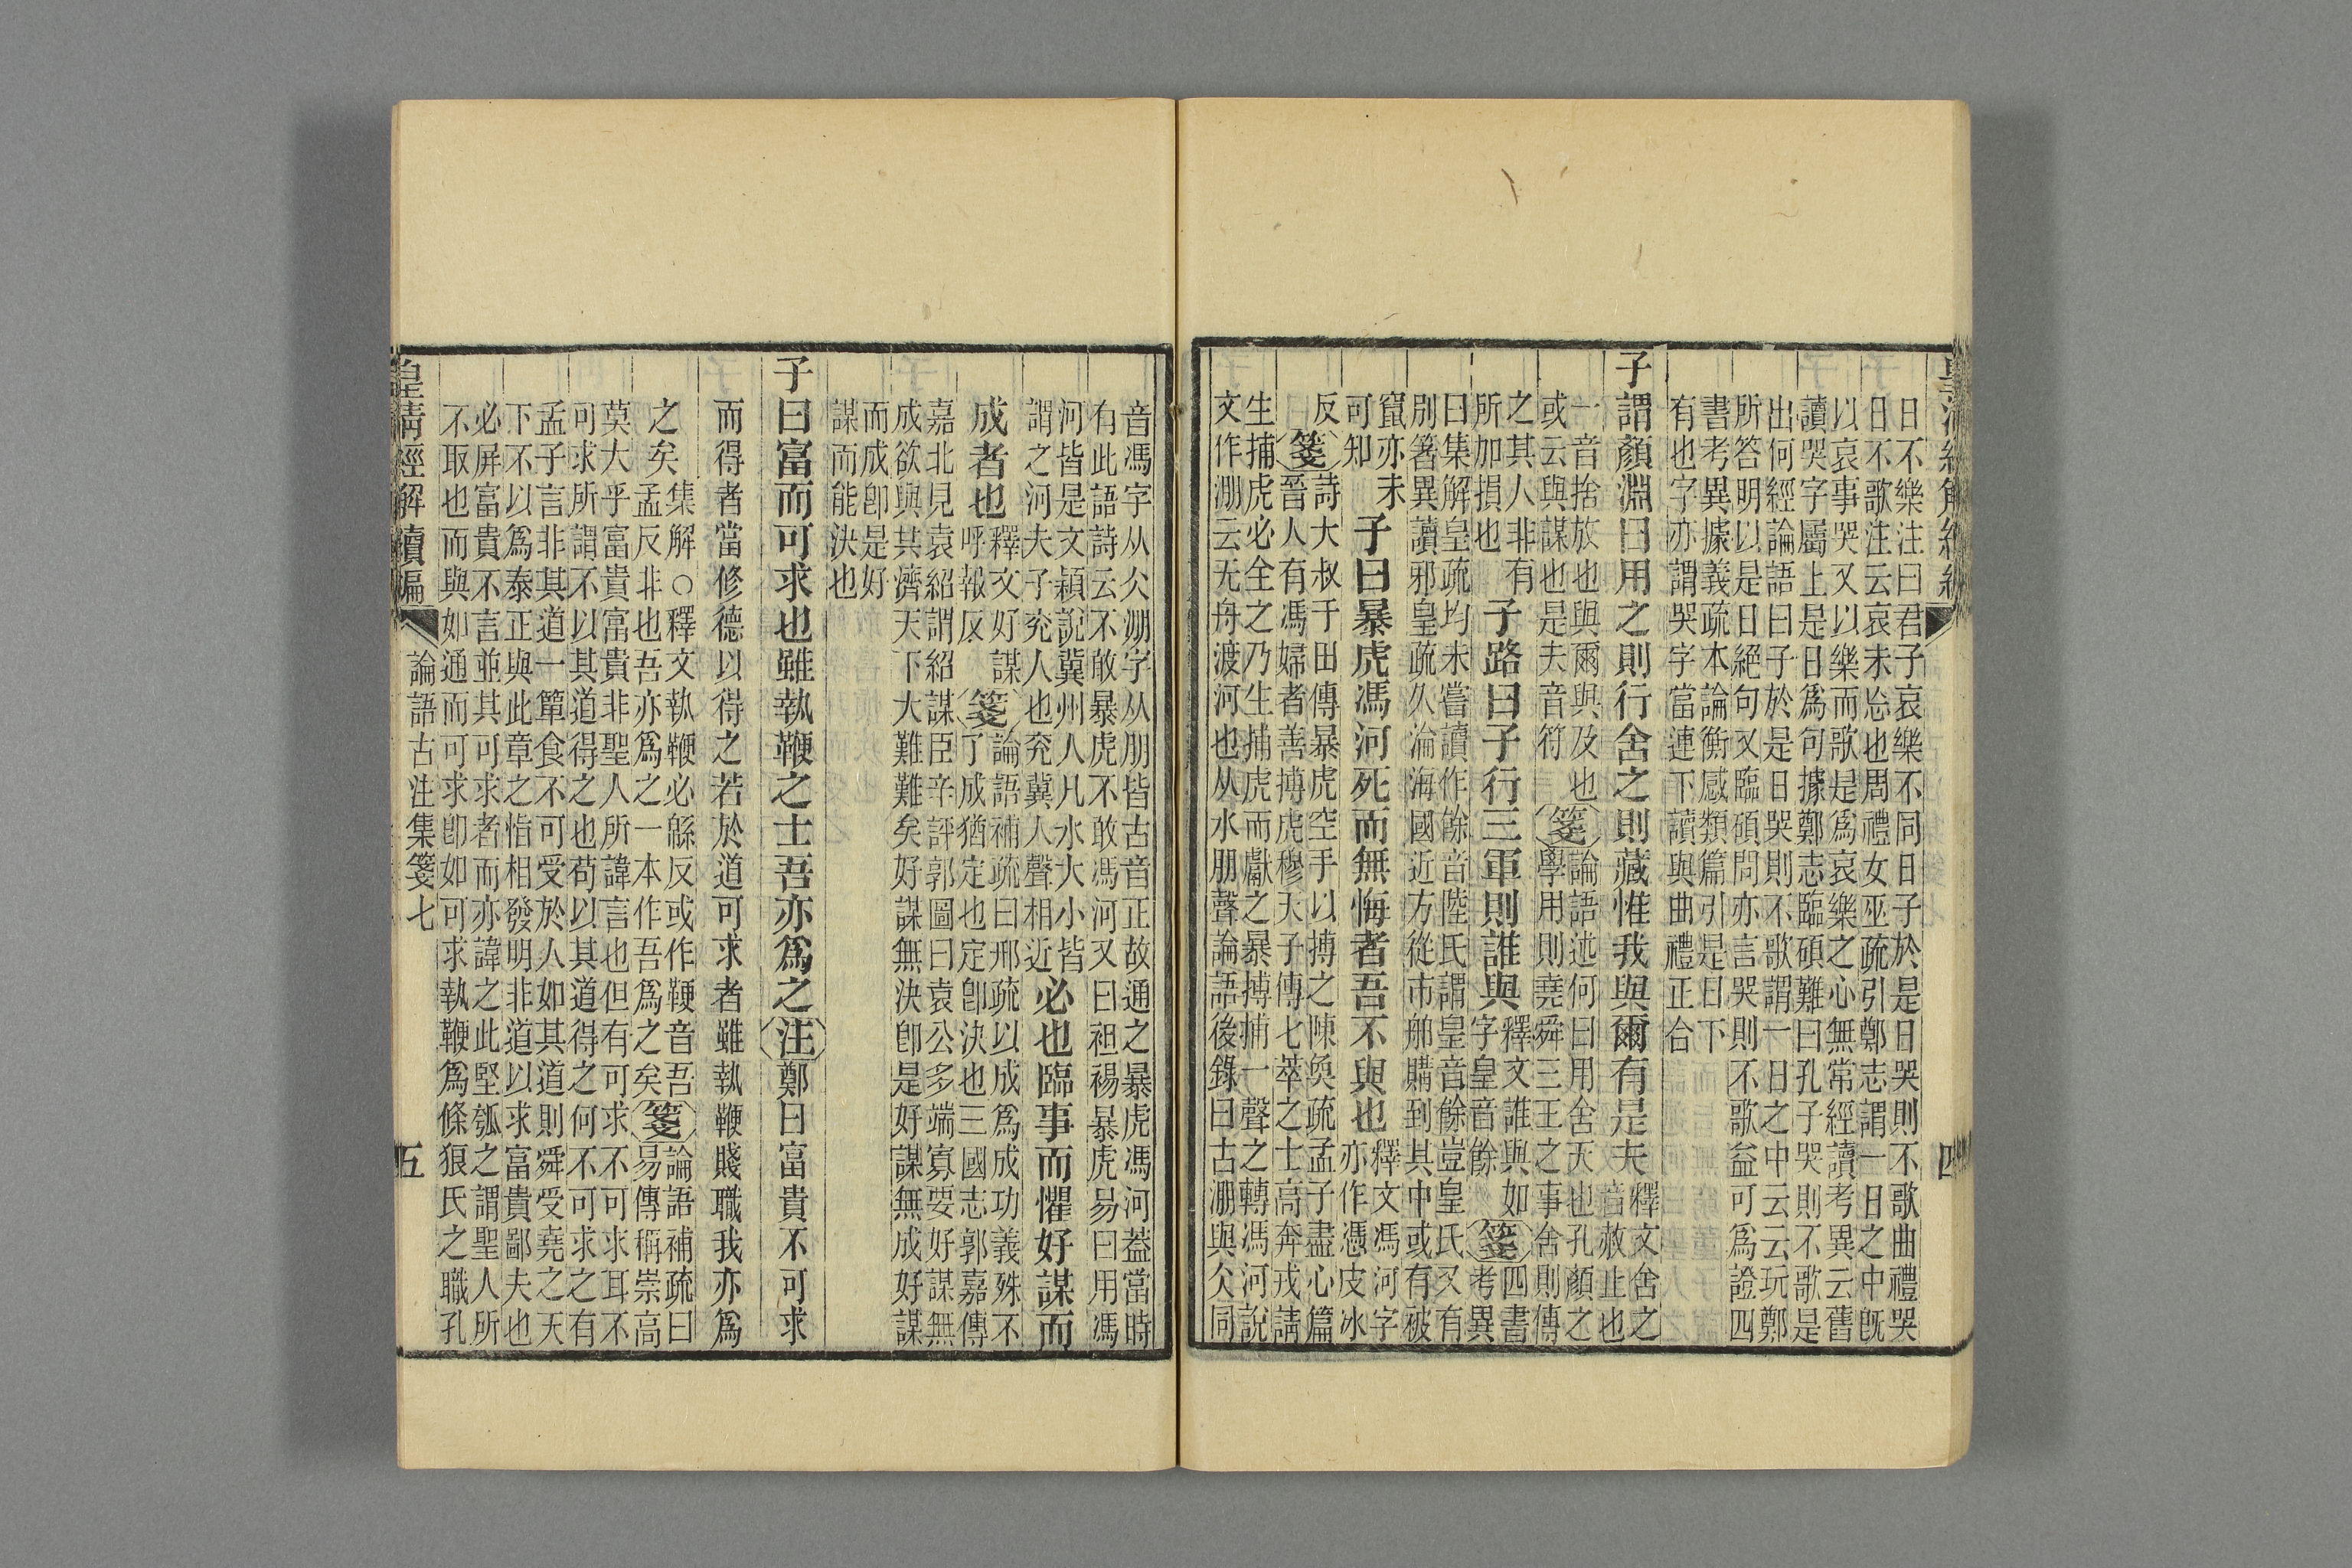 日不樂注曰君子哀樂不同日子於是日哭則不歌曲禮哭
日不歌注云哀未忘也周禮女巫疏引鄭志謂一日之中旣
以哀事哭又以樂而歌是爲哀樂之心無常經讀考異云舊
讀哭字屬上是日爲句據鄭志臨碩難曰孔子哭則不歌是
出何經論語曰子於是日哭則不歌謂一日之中云云玩鄭
所答明以是日絕句又臨碩問亦言哭則不歌益可爲證四
書考異據義疏本論衡感類篇引是日下
有也字亦謂哭字當連下讀與曲禮正合
子謂顏淵曰用之則行舍之則藏惟我與爾有是夫
釋文舍之
音赦止也
一音捨放也與爾與及也
或云與謀也是夫音符
箋
論語述何曰用舍天也孔顏之
學用則堯舜三王之事舍則傳
之其人非有
所加損也
子路曰子行三軍則誰與
釋文誰與如
字皇音餘
箋
四書
考異
曰集解皇疏均未嘗讀作餘音陸氏謂皇音餘豈皇氏又有
別箸異讀邪皇疏久淪海國近方從市舶購到其中或有被
竄亦未
可知
子曰暴虎馮河死而無悔者吾不與也
釋文馮河字
亦作憑皮冰
反
箋
詩大叔于田傳暴虎空手以搏之陳奐疏孟子盡心篇
晉人有馮婦者善搏虎穆天子傳七萃之士高奔戎請
生捕虎必全之乃生捕虎而獻之暴搏捕一聲之轉馮河說
文作淜云无舟渡河也从水朋聲論語後錄曰古淜與仌同
音馮字从仌淜字从朋皆古音正故通之暴虎馮河葢當時
有此語詩云不敢暴虎不敢馮河又曰袒裼暴虎易曰用馮
河皆是文穎說冀州人凡水大小皆
謂之河夫子兖人也兖冀人聲相近
必也臨事而懼好謀而
成者也
釋文好謀
呼報反
箋
論語補疏曰邢疏以成爲成功義殊不
了成猶定也定卽決也三國志郭嘉傳
嘉北見袁紹謂紹謀臣辛評郭圖曰袁公多端寡要好謀無
成欲與其濟天下大難難矣好謀無決卽是好謀無成好謀
而成卽是好
謀而能決也
子曰富而可求也雖執鞭之士吾亦爲之注鄭曰富貴不可求
而得者當修德以得之若於道可求者雖執鞭賤職我亦爲
之矣
集解○釋文執鞭必緜反或作鞕音吾
孟反非也吾亦爲之一本作吾爲之矣
箋
論語補疏曰
易傳稱崇高
莫大乎富貴富貴非聖人所諱言也但有可求不可求耳不
可求所謂不以其道得之也苟以其道得之何不可求之有
孟子言非其道一簞食不可受於人如其道則舜受堯之天
下不以爲泰正與此章之恉相發明非道以求富貴鄙夫也
必屏富貴不言並其可求者而亦諱之此堅瓠之謂聖人所
不取也而與如通而可求卽如可求執鞭爲條狼氏之職孔
皇清經解續編
論語古注集箋七
五